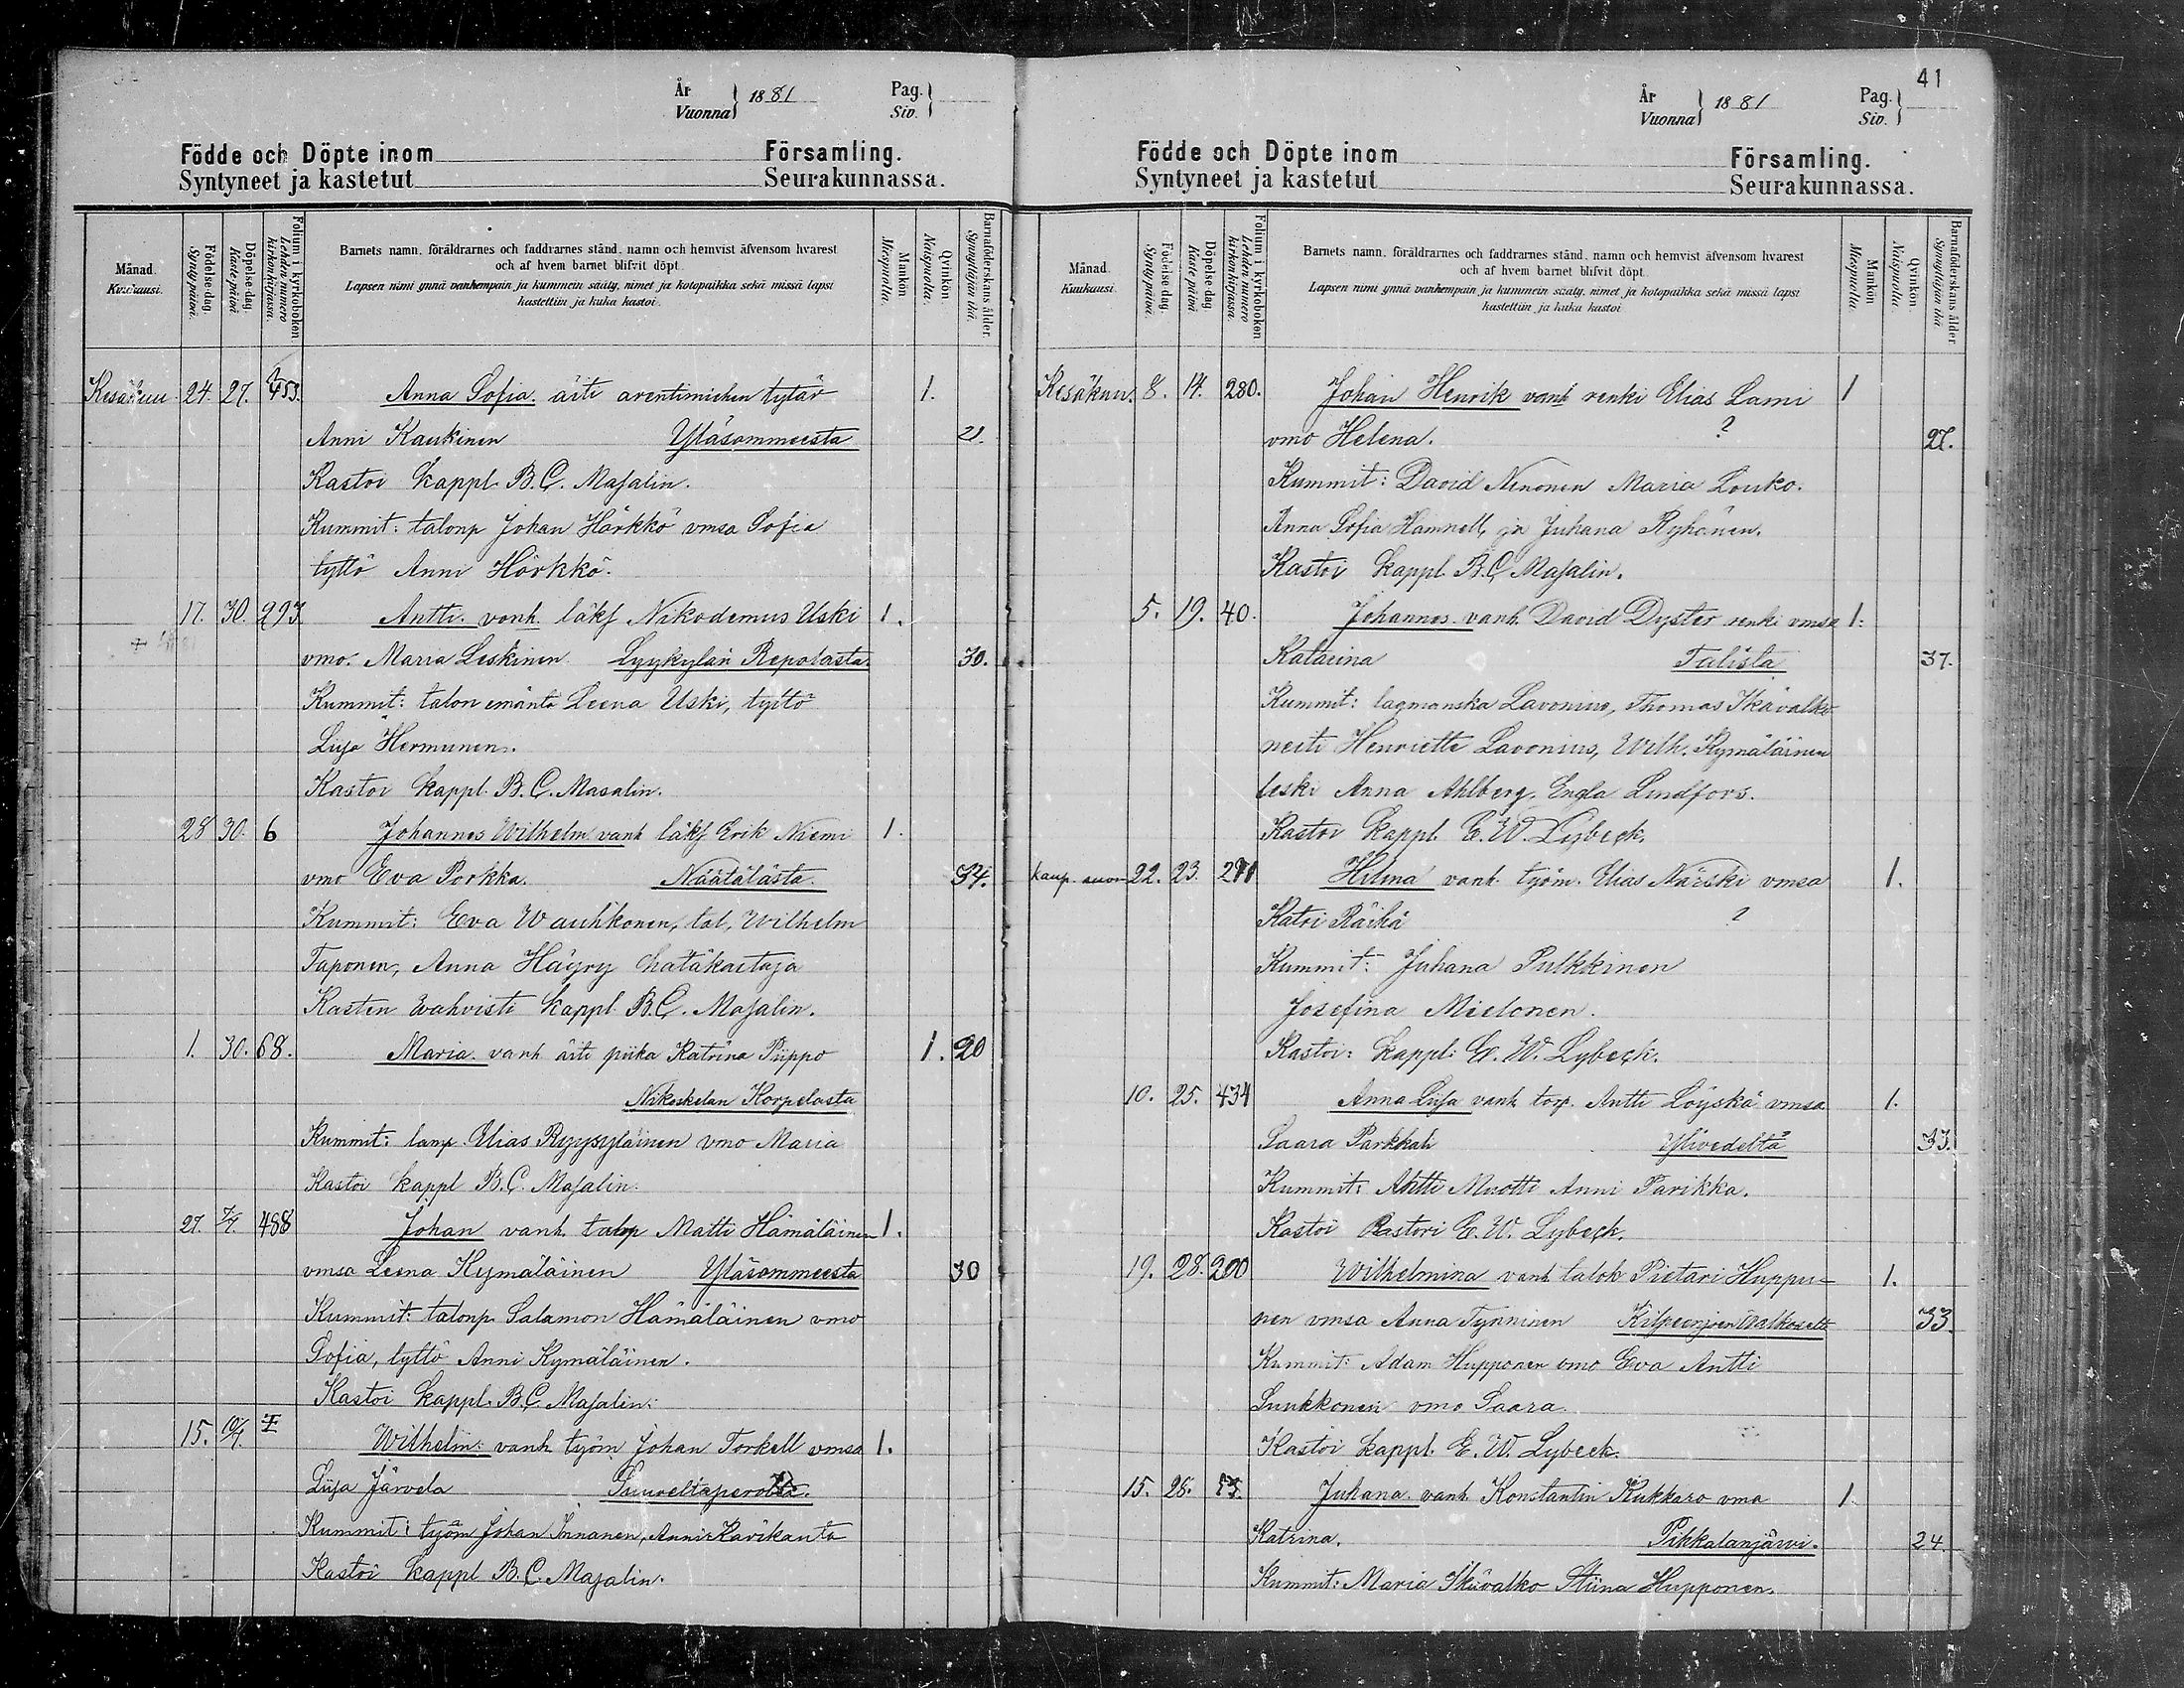 År
Vuonna } 1881
Pag.
Siv. }
Födde och Döpte inom Församling.
Syntyneet ja kastetut Seurakunnassa.
Månad.
Kuukausi.
Födelse-dag.
Syntypäivä.
Döpelse-dag.
Kastepäivä.
Folium i kyrkoboken
Lehden numero
kirkonkirjassa.
Barnets namn, föräldrarnes och faddrarnes stånd, namn och hemvist äfvensom hvarest
och af hvem barnet blifvit döpt.
Lapsen nimi ynnä vanhempain ja kummein sääty, nimet ja kotopaikka sekä missä lapsi
kastettiin ja kuka kastoi.
Mankön
Miespuolia.
Qvinkön
Naispuolia.
Barnaföderskans ålder.
Synnyttäjän ikä.
Kesäkuu 24. 27. 453. Anna Sofia. äiti arentimiehen tytär 1.
Anni Kaukinen Yläsommeesta 21.
Kastoi kappl. B.C. Masalin.
Kummit: talonp Johan Härkkö vmsa Sofia
tyttö Anni Hörkkö.
17. 30. 293 Antti. vanh. läks Nikodemus Uski 1.
vmo. Maria Leskinen Lyykylän Repolasta 30.
Kummit: talon emäntä Leena Uski, tyttö
Liisa Hermunen.
Kastoi kappl. B.C. Masalin.
28 30. 6 Johannes Wilhelm vanh läks Erik Niemi 1.
vmo Eva Porkka. Näätälästä 34.
Kummit: Eva Wauhkonen, tal, Wilhelm
Taponen, Anna Häyry hätäkastaja
Kasten wahvisti kappl. B.C. Masalin.
1. 30. 68. Maria. vanh äiti piika Katrina Piippo 1. 20
Nikoskelan Korpelasta
Kummit: lamp. Elias Ryysyläinen vmo Maria
Kastoi kappl B.C. Masalin.
27. 7/7. 488 Johan vanh. talop Matti Hämäläinen 1.
vmsa Leena Kymäläinen Yläsommeesta 30
Kummit: talonp. Salamon Hämäläinen vmo
Sofia, tyttö Anni Kymäläinen.
Kastoi kappl. B.C. Masalin.
15. 10/7. I Wilhelm: vanh työm Johan Torkell vmsa 1.
Liisa Järvela
Kummit: työm Johan Innanen, Anni Ravikanta
Kastoi kappl B.C. Masalin.
41
År
Vuonna } 1881
Pag.
Siv. }
Födde och Döpte inom Församling.
Syntyneet ja kastetut Seurakunnassa.
Månad.
Kuukausi.
Födelse-dag.
Syntypäivä.
Döpelse-dag.
Kastepäivä.
Folium i kyrkoboken
Lehden numero
kirkonkirjassa.
Barnets namn, föräldrarnes och faddrarnes stånd, namn och hemvist äfvensom hvarest
och af hvem barnet blifvit döpt.
Lapsen nimi ynnä vanhempain ja kummein sääty, nimet ja kotopaikka sekä missä lapsi
kastettiin ja kuka kastoi
Mankön
Miespuolia.
Qvinkön
Naispuolia.
Barnaföderskans ålder
Synnyttäjän ikä
Kesäkuu. 8. 14. 280. Johan Henrik vanh renki Elias Lami 1
vmo Helena. ? 27.
Kummit: David Nenonen Maria Louko.
Anna Sofia Hamnell, ja Juhana Ryhänen.
Kastoi kappl. B.C. Masalin.
5. 19. 40. Johannes vanh. David Dyster renki vmsa 1.
Katarina Talista 37.
Kummit: lagmanska Lavonius, Thomas Ikävalko
neiti Henriette Lavonius, Wilh. Kymäläinen
leski Anna Ahlberg, Engla Lindfors.
Kastoi kappl. E. W. Lybeck.
22. 23. 271 Hilma vanh. työm. Elias Närski vmsa 1.
Katri Räikä ?
Kummit: Juhana Pulkkinen
Josefina Mielonen.
Kastoi: kappl: E. W. Lybeck.
10. 25. 434 Anna Liisa vanh torp. Antti Löyskä vmsa 1.
Saara Parkkali Ylivedeltä 33.
Kummit: Antti Muotti Anni Parikka.
Kastoi Pastori E. W. Lybeck.
19. 28. 200 Wilhelmina vanh talok Pietari Huppu- 1.
nen vmsa Anna Tynninen Kilpeenjoen 33.
Kummit: Adam Hupponen vmo Eva Antti
Suukkonen vmo Saara.
Kastoi kappl. E. W. Lybeck.
15. 28. Juhana. vanh. Konstantin Kukkaro vma 1.
Katrina. Pikkalanjärwi. 24.
Kummit: Maria Ikävalko Stiina Hupponen.